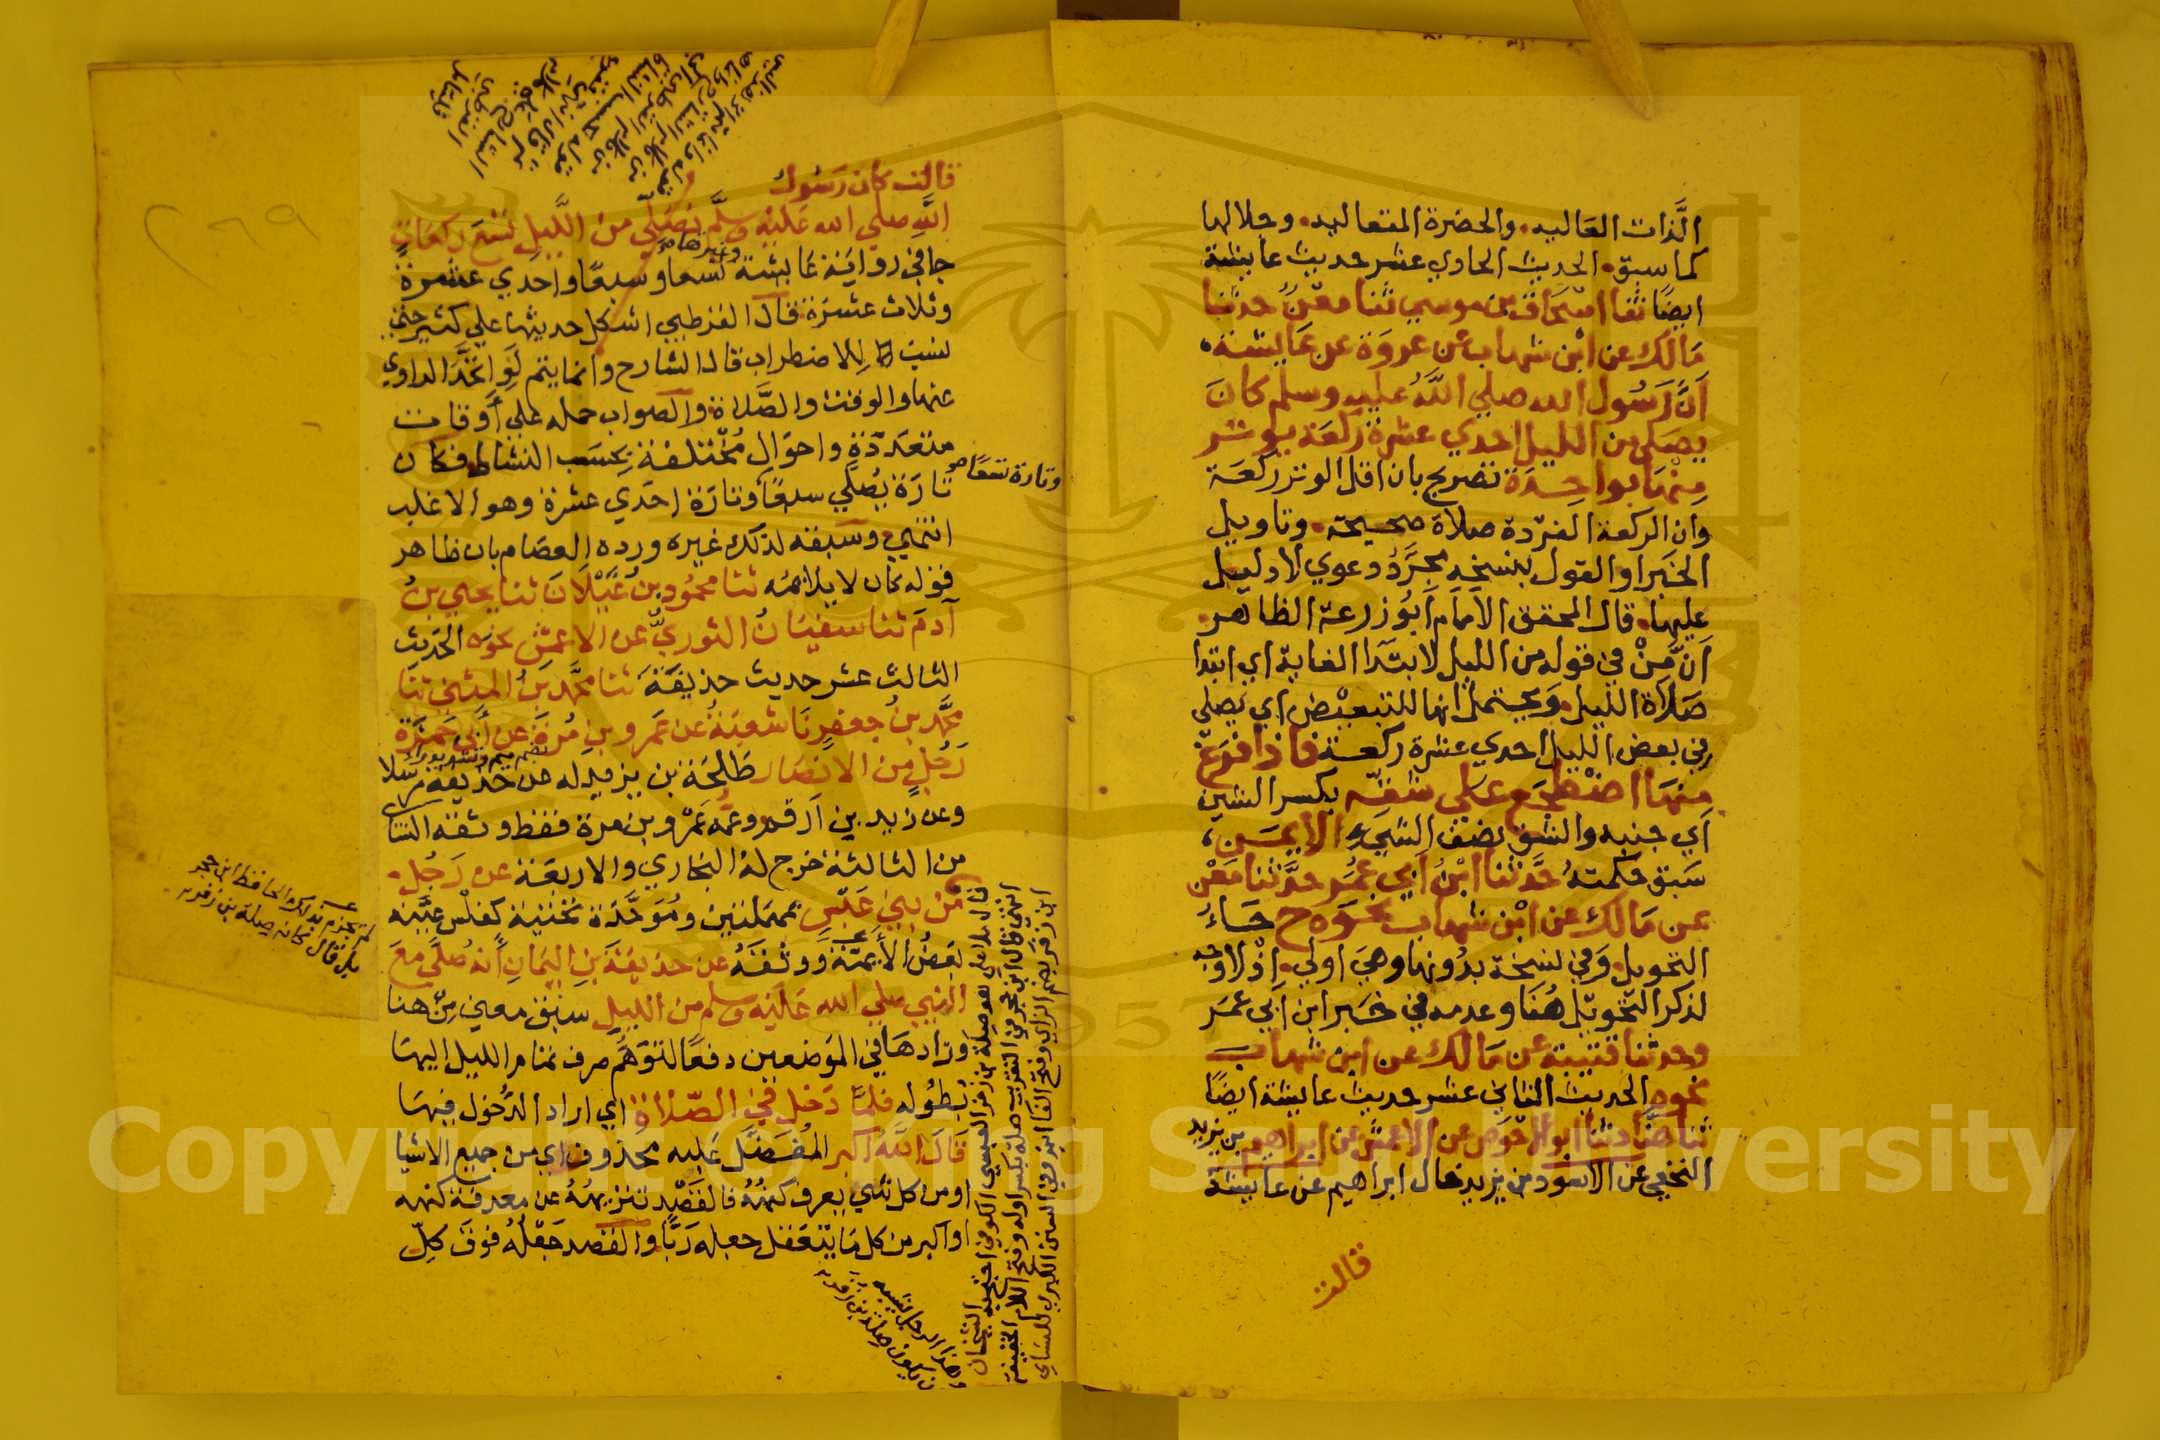 الذات العاليه والحضرة المتعاليه وجلالها
كما سبق الحديث الحادي عشر حديث عايشة
ايضا ثنا اسحاق بن موسي ثنا معن حدثنا
مالك عن ابن شهاب عن عروة عن عايشة
أن رسول الله صلي الله عليه وسلم كان
يصلي من الليل احدي عشرة ركعة يوتر
منها بواحدة تصريح بان اقل الوتر ركعة
وان الركعة الفردة صلاة صحيحة وتاويل
الخبر او القول بنسخه مجرد دعوي لا دليل
عليها قال المحقق الامام ابو زرعة الظاهر
أن من في قوله من الليل لابتدا الغاية اي ابتدا
صلاة الليل ويحتمل انها للتبعيض اي يصلي
في بعض الليل احدي عشرة ركعة فاذا فرغ
منها اضطجع علي شقه بكسر الشين
اي جنبه والشق نصف الشيء الايمن
سبق حكمته حدثنا ابن ابي عمر حدثنا معن
عن مالك عن ابن شهاب نحوه ح حاء
التحويل وفي نسخة بدونها وهي اولي اذ لا وجه
لذكر التحويل هنا وعدمه في خبر ابن ابي عمر
وحدثنا قتيبة عن مالك عن ابن شهاب
نحوه الحديث الثاني عشر حديث عايشة ايضا
ثنا هناد ثنا ابو الاحوص عن الاعمش عن ابراهيم بن يزيد
النخعي عن الاسود بن يزيد خال ابراهيم عن عايشة
قالت
قالت كان رسول
الله صلي الله عليه وسلم يصلي من الليل تسع ركعات
جا في رواية عايشة تسعا وسبعا واحدي عشرة
وغيرها
وثلاث عشرة قال القرطبي اشكل حديثها علي كثير حتي
نسب للاضطراب قال الشارح وانما يتم لو اتحد الراوي
عنها والوقت والصلاة والصواب حمله علي أوقات
متعددة واحوال مختلفة بحسب النشاط فكان
تارة يصلي سبعا وتارة احدي عشرة وهو الاغلب
وتارة تسعا صح
انتهي وسبقه لذلك غيره ورده العصام بان ظاهر
قوله كان لا يلايمه ثنا محمود بن غيلان ثنا يحيي بن
آدم ثنا سفيان الثوري عن الاعمش نحوه الحديث
الثالث عشر حديث حذيفة ثنا محمد بن المثني ثنا
محمد بن جعفر نا شعبة عن عمرو بن مرة عن أبي حمزة
رجل من الانصار طلحة بن يزيد له عن حذيفة مرسلا
وعن زيد بن ارقم وعنه عمرو بن مرة فقط وثقه النسا
من الثالثة خرج له البخاري والاربعة عن رجل
من بني عبس بمهملتين وموحدة تحتية كفلس عينه
بعض الأيمة ووثقه عن حذيفة بن اليمان أنه صلي مع
النبي صلي الله عليه وسلم من الليل سبق معني من هنا
وزادها في الموضعين دفعا لتوهم صرف تمام الليل اليها
بطوله فلما دخل في الصلاة اي اراد الدخول فيها
قال الله اكبر المفضل عليه محذوف اي من جميع الاشيا
او من كل شي يعرف كنهه فالقصد تنزيهه عن معرفة كنهه
او اكبر من كل ما يتعقل جعله ربا والقصد جعله فوق كل
لم يجزم بذلك الحافظ ابن حجر
بل قال كانه صلة بن زفر
Copyright © King Saud University
1957